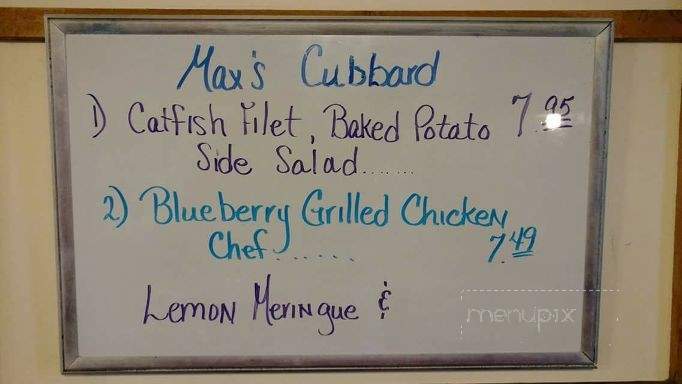 Max's Cubbard
1) Catfish Filet, Baked Potato 7.95
Side Salad.......
2) Blueberry Grilled Chicken
Chef....... 7.49
Lemon Meringue &
menupix